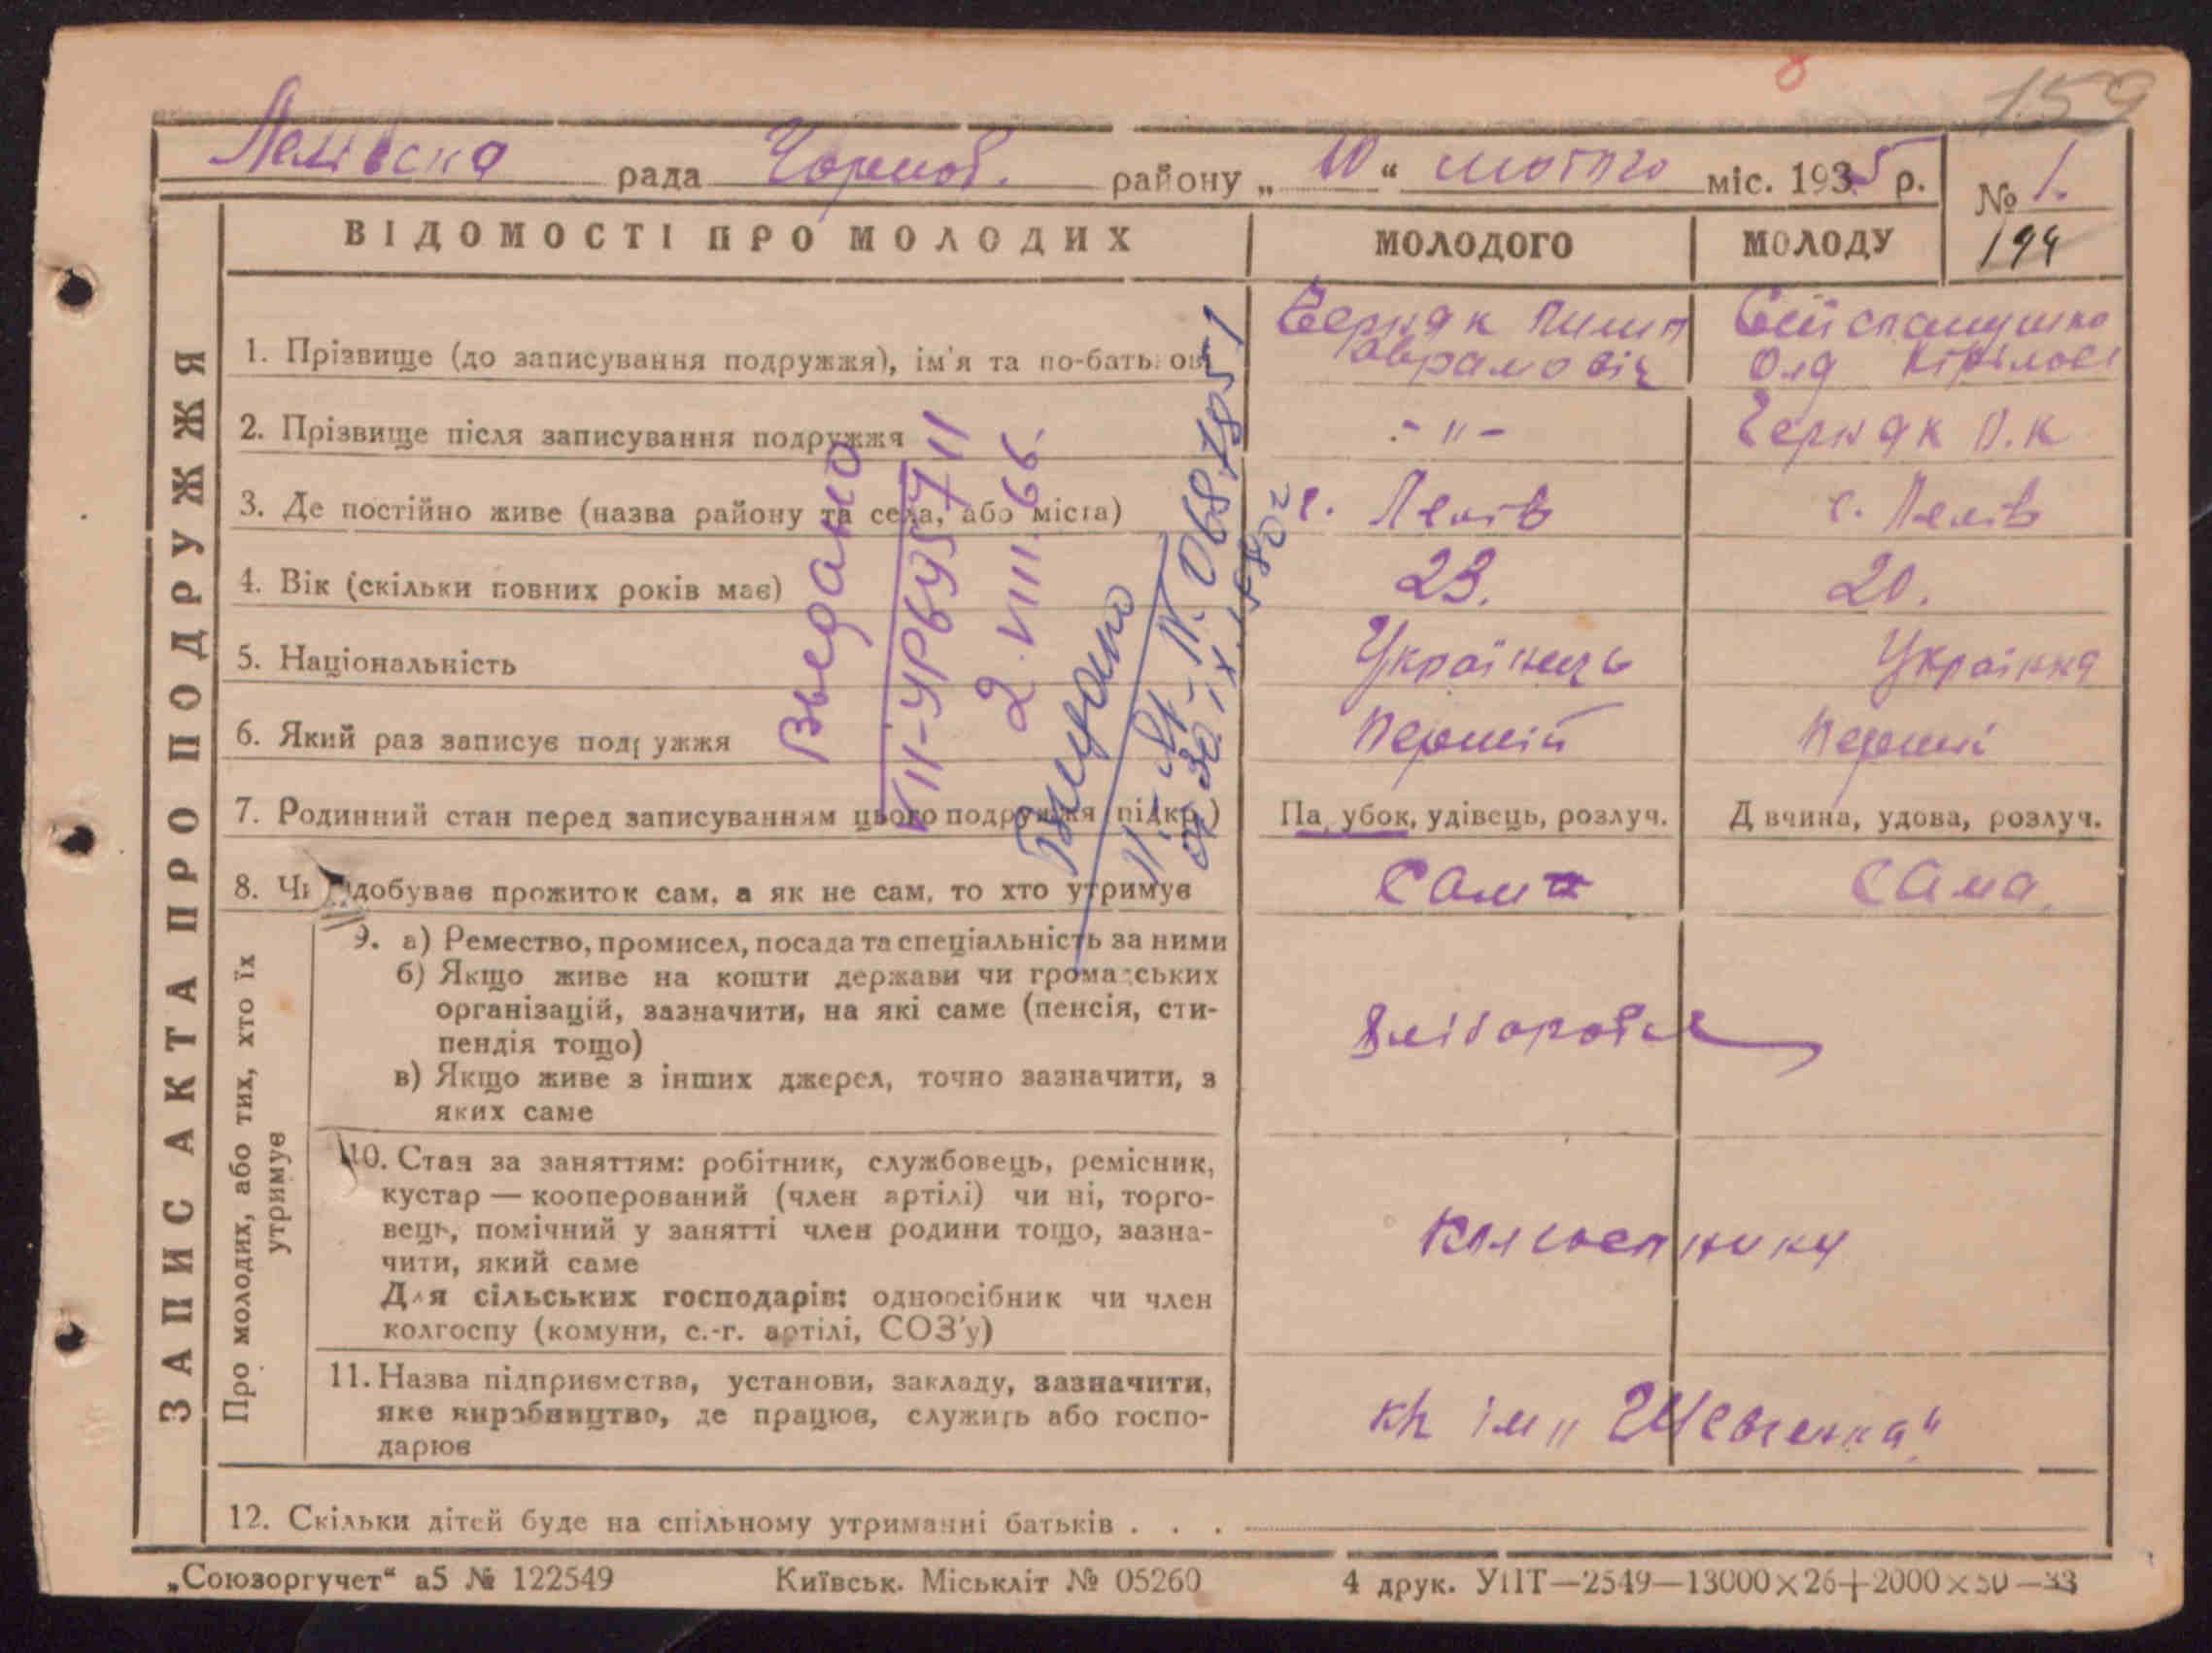 159
Лелівська рада Чорноб. району „ 10 “ лютого міс. 1935 р. № 1.
ВІДОМОСТІ ПРО МОЛОДИХ МОЛОДОГО МОЛОДУ 194
ЗАПИС АКТА ПРО ПОДРУЖЖЯ
1. Прізвище (до записування подружжя), ім'я та по-батькові Черняк Пилип
Аврамовіч Оля
2. Прізвище після записування подружжя -"- Черняк О.К
3. Де постійно живе (назва району та села, або міста) с. Лелів с. Лелів
4. Вік (скільки повних років має) 23. 20.
5. Національність Українець Українка
6. Який раз записує подружжя Першій Перший
7. Родинний стан перед записуванням цього подружжя (підкр.) Парубок, удівець, розлуч. Дівчина, удова, розлуч.
8. Чи здобуває прожиток сам, а як не сам, то хто утримує Сам Сама.
Про молодих, або тих, хто їх
утримує
9. а) Ремество, промисел, посада та спеціальність за ними
б) Якщо живе на кошти держави чи громадських
організацій, зазначити, на які саме (пенсія, сти-
пендія тощо)
в) Якщо живе з інших джерел, точно зазначити, з
яких саме
Хлібороби
10. Стан за заняттям: робітник, службовець, ремісник,
кустар — кооперований (член артілі) чи ні, торго-
вець, помічний у занятті член родини тощо, зазна-
чити, який саме
Для сільських господарів: одноосібник чи член
колгоспу (комуни, с.-г. артілі, СОЗ'у)
Колгоспники
11. Назва підприємства, установи, закладу, зазначити,
яке виробництво, де працює, служить або госпо-
дарює
кг ім „Шевченка“
12. Скільки дітей буде на спільному утриманні батьків . . .
Выдано
VII-УР
2.VIII.66.
Видано
„Союзоргучет“ а5 № 122549 Київськ. Міськліт № 05260 4 друк. УПТ—2549—13000×26+2000×50—33